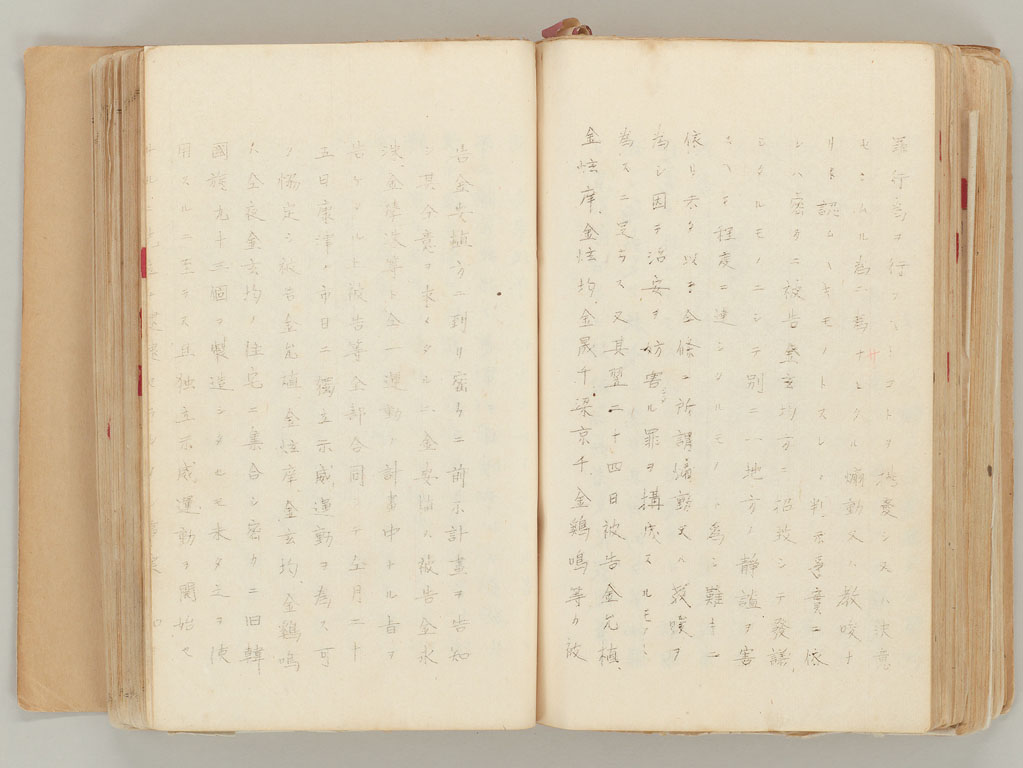 罪行為ヲ行フヘキコトヲ擾シ又ハ決意
セシムル為ニ為ナレタル煽動又ハ教唆ナ
リト認ムヘキモノトス 判示事實ニ依
レハ密カニ被告金玄均方ニ招致シテ發議
シタルモノニシテ別ニ地方ノ静謐ヲ害
スヘキ程度ニ達シタルモノト為シ難キニ
依リ未タ以テ仝條ニ所謂煽動又ハ教唆ヲ
為シ因テ治安ヲ妨害スル罪ヲ構成スルモノト
為スニ足ラス又其翌二十四日被告金允植、
金炷庠、金炷均、金晟千、梁京千、金鷄鳴等カ被
告金安植方ニ到リ密カニ前示計畫ヲ告知
シ其仝意ヲ求メタルニ金安植ハ被告金永
洙、金 洙等ト仝一運動ノ計畫中ナル旨ヲ
告ケタル上被告等全部合同シテ仝月二十
五日康津ノ市日ニ獨立示威運動ヲ為ス可
ク協定シ被告金允植、金炷庠、金玄均、金鷄鳴
ハ仝夜金玄均ノ住宅ニ集合シ密カニ旧韓
國旗九十三個ヲ製造シタルモ未タ之ヲ使
用スルニ至ラス且独立示威運動ヲ開始セ